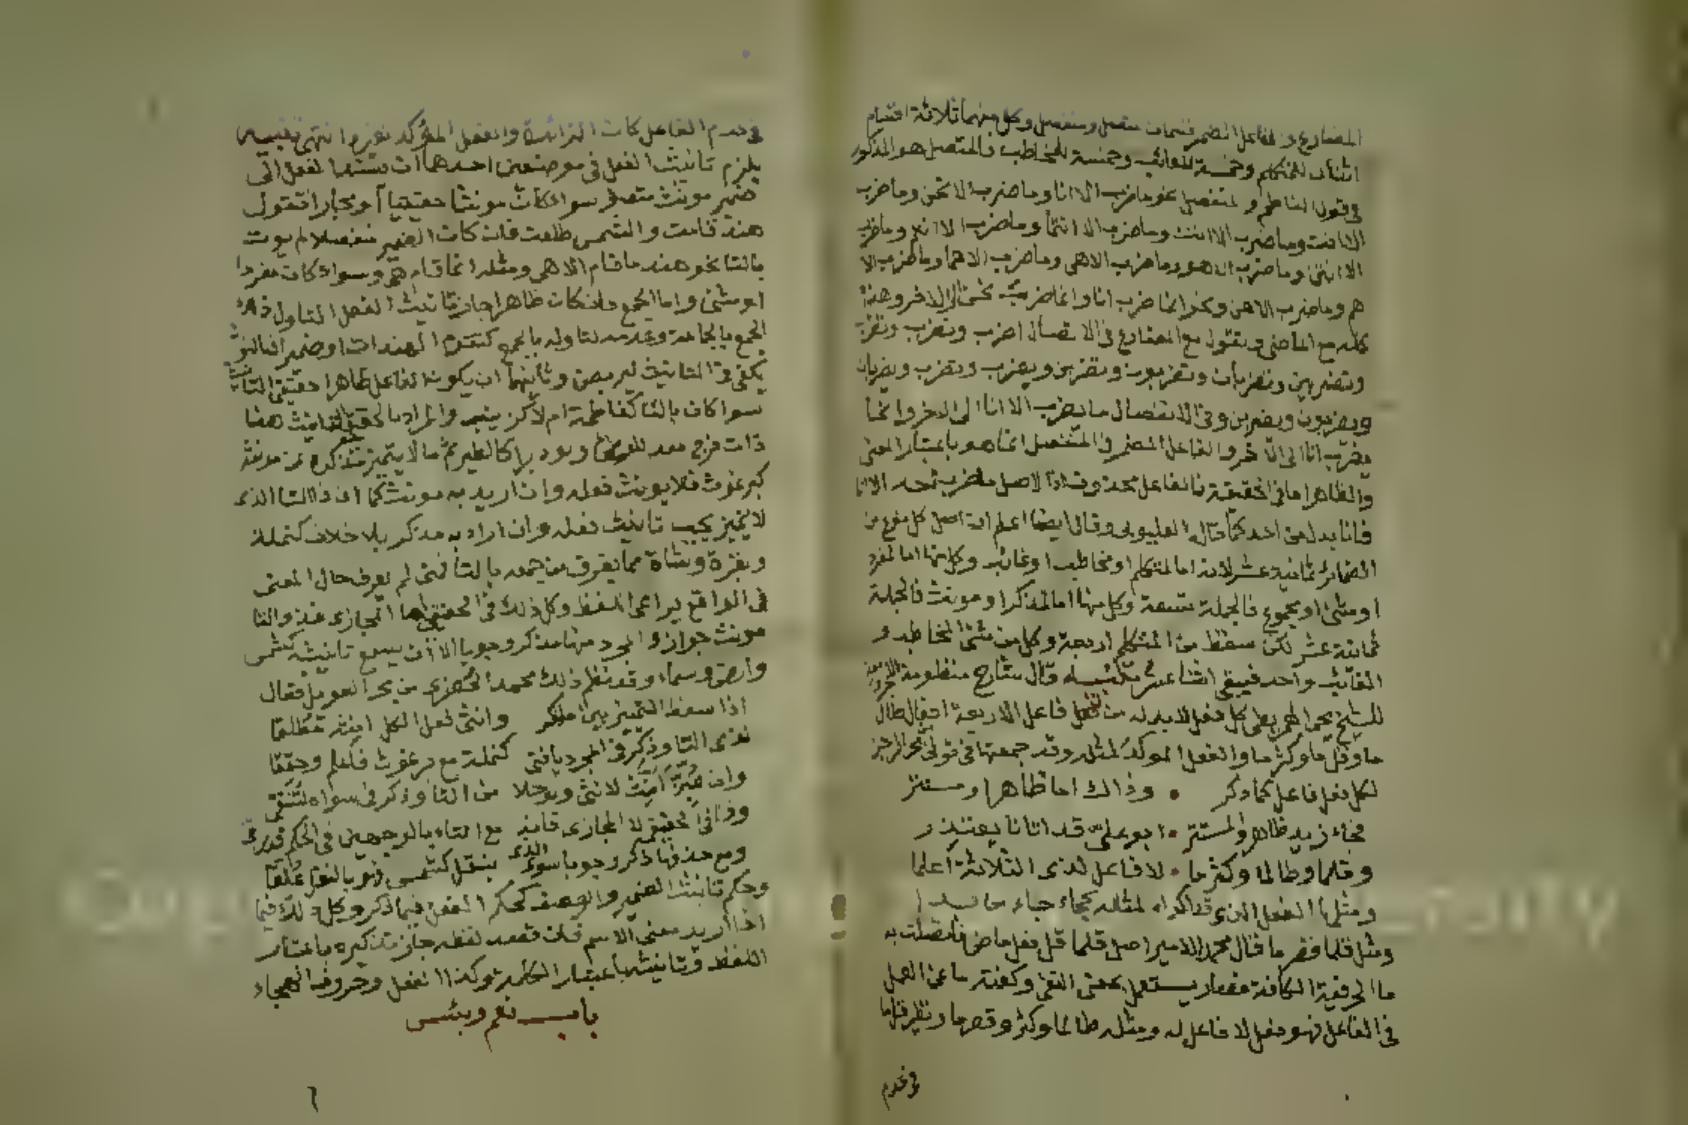 المضارع والفاعل المضمر قسمان متصل ومنفصل وكل منهما ثلاثة اقسام
اثنان للمتكلم وخمسة للغائب وخمسة للمخاطب فالمتصل هو المذكور
في قول الناظم والمنفصل نحو ما ضرب الا انا وما ضرب الا نحن وما ضرب
الا انت وما ضرب الا انت وما ضرب الا انتما وما ضرب الا انتم وما ضرب
الا انتن وما ضرب الا هو وما ضرب الا هي وما ضرب الا هما وما ضرب الا
هم وما ضرب الا هن ونحو انما ضرب انا وانما ضرب نحن الى الاخر وهذا
كله مع الماضي وتقول مع المضارع في الاتصال اضرب ونضرب وتضرب
وتضربين وتضربان وتضربون وتضربن ويضرب وتضرب ويضربان
ويضربون ويضربن وفي الانفصال ما يضرب الا انا الى الاخر وانما
يضرب انا الى الاخر والفاعل المضمر في المنفصل انما هو باعتبار المعنى
والظاهر اما في الحقيقة فالفاعل محذوف اذ الاصل ما ضرب احد الا انا
فانا بدل من احد كما قاله القليوبي وقال ايضا اعلم ان اصل كل مرفوع من
الضمائر ثمانية عشر لانه اما لمتكلم او مخاطب او غائب وكل منها اما لمفرد
او مثنى او مجموع فالجملة تسعة وكل منها اما لمذكر او مونث فالجملة
ثمانية عشر لكن سقط من المتكلم اربعة وكل من مثنى المخاطب و
الغائب واحد فيبقى اثنا عشر تنبيه قال شارح منظومة
للشيخ يحيى العمريطي كل فعل لابد له من فاعل الا اربعة افعال طال
ما وقل ما وكثر ما والفعل الموكد لمثله وقد جمعتها في قولي بحر الرجز
لكل فعل فاعل كما ذكر • وذاك اما ظاهر او مستتر
فجاء زيد ظاهر والمستتر • ابو علي قد اتانا يعتذر
وقلما وطالما وكثرما • لا فاعل لذي الثلاثة اعلما
ومثلها الفعل الذي قد اكدا • لمثله كجاء جاء
ومثل قلما قصر ما قال محمد الامير اصل قلما قل فعل ماض فاتصلت به
ما الحرفية الكافة فصار يستعمل بمعنى النفي وكفته ما عن العمل
في الفاعل فهو فعل لا فاعل له ومثله طالما وكثر وقصرما ونظير قلما
في عدم
في عدم الفاعل كان الزائدة والفعل المؤكد لغيره انتهى تنبيه
يلزم تانيث الفعل في موضعين احدهما ان يستند الفعل الى
ضمير مونث متصل سوا كان مونثا حقيقيا او مجازا فتقول
هند قامت والشمس طلعت فان كان الضمير منفصلا لم يوت
بالتا نحو هند ما قام الا هي ومثله انما قام هي وسواء كان مفردا
او مثنى واما الجمع فان كان ظاهرا جاز تانيث الفعل لتاوله
الجمع بالجماعة وعدمه لتاوله بالجمع كتقوم الهندات او ضميرا فالنون
يكفي في التانيث ليربصن وثانيهما ان يكون الفاعل ظاهرا حقيقي التانيث
سوا كان بالتا كفاطمة ام لا كزينب والمراد بالحقيقي التانيث هنا
ذات فرج معد للوطئ ولو دبرا كالطير ثم ما لا يتميز مذكره من مونثه
كبرغوث فلا يونث فعله وان اريد به مونث كما ان ذا التا الذي
لا يتميز يجب تانيث فعله وان اراد به مذكر بلا خلاف كنملة
وبقرة وشاة مما يفرق من جمعه بالتا فمتى لم يعرف حال المعنى
في الواقع يراعى اللفظ وكل ذلك في الحقيقي اما المجازي فذو التا
مونث جوازا والمجرد منها مذكر وجوبا الا ان يسمع تانيثه كشمس
وارض وسماء وقد نظم ذلك محمد الخضري من بحر الطويل فقال
اذا سقط التمييز بين مذكر وانثى لفعل الكل انثه مطلقا
لذي التا وذكر في المجرد يا فتى كنملة مع برغوث فاعلم وحققا
وان مُيِّزَا اَنِّث لانثى ورجلا من التا وذكر في سواه لتتقي
وذا في الحقيقي لا المجازي فانه مع التاء بالوجهين في الحكم
ومع حذفها ذكر وجوبا سوى الذي بنقل كشمس فهو بالنقل علقا
وحكم تانيث الضمير والوصف كحكم الفعل فيما ذكر وكل ذلك فيما
اذا اريد معنى الاسم فان قصد لفظه جاز تذكيره باعتبار
اللفظ وتانيثه باعتبار الكلمة وكذا الفعل وحروف الهجاء
باب نعم وبئس
٦